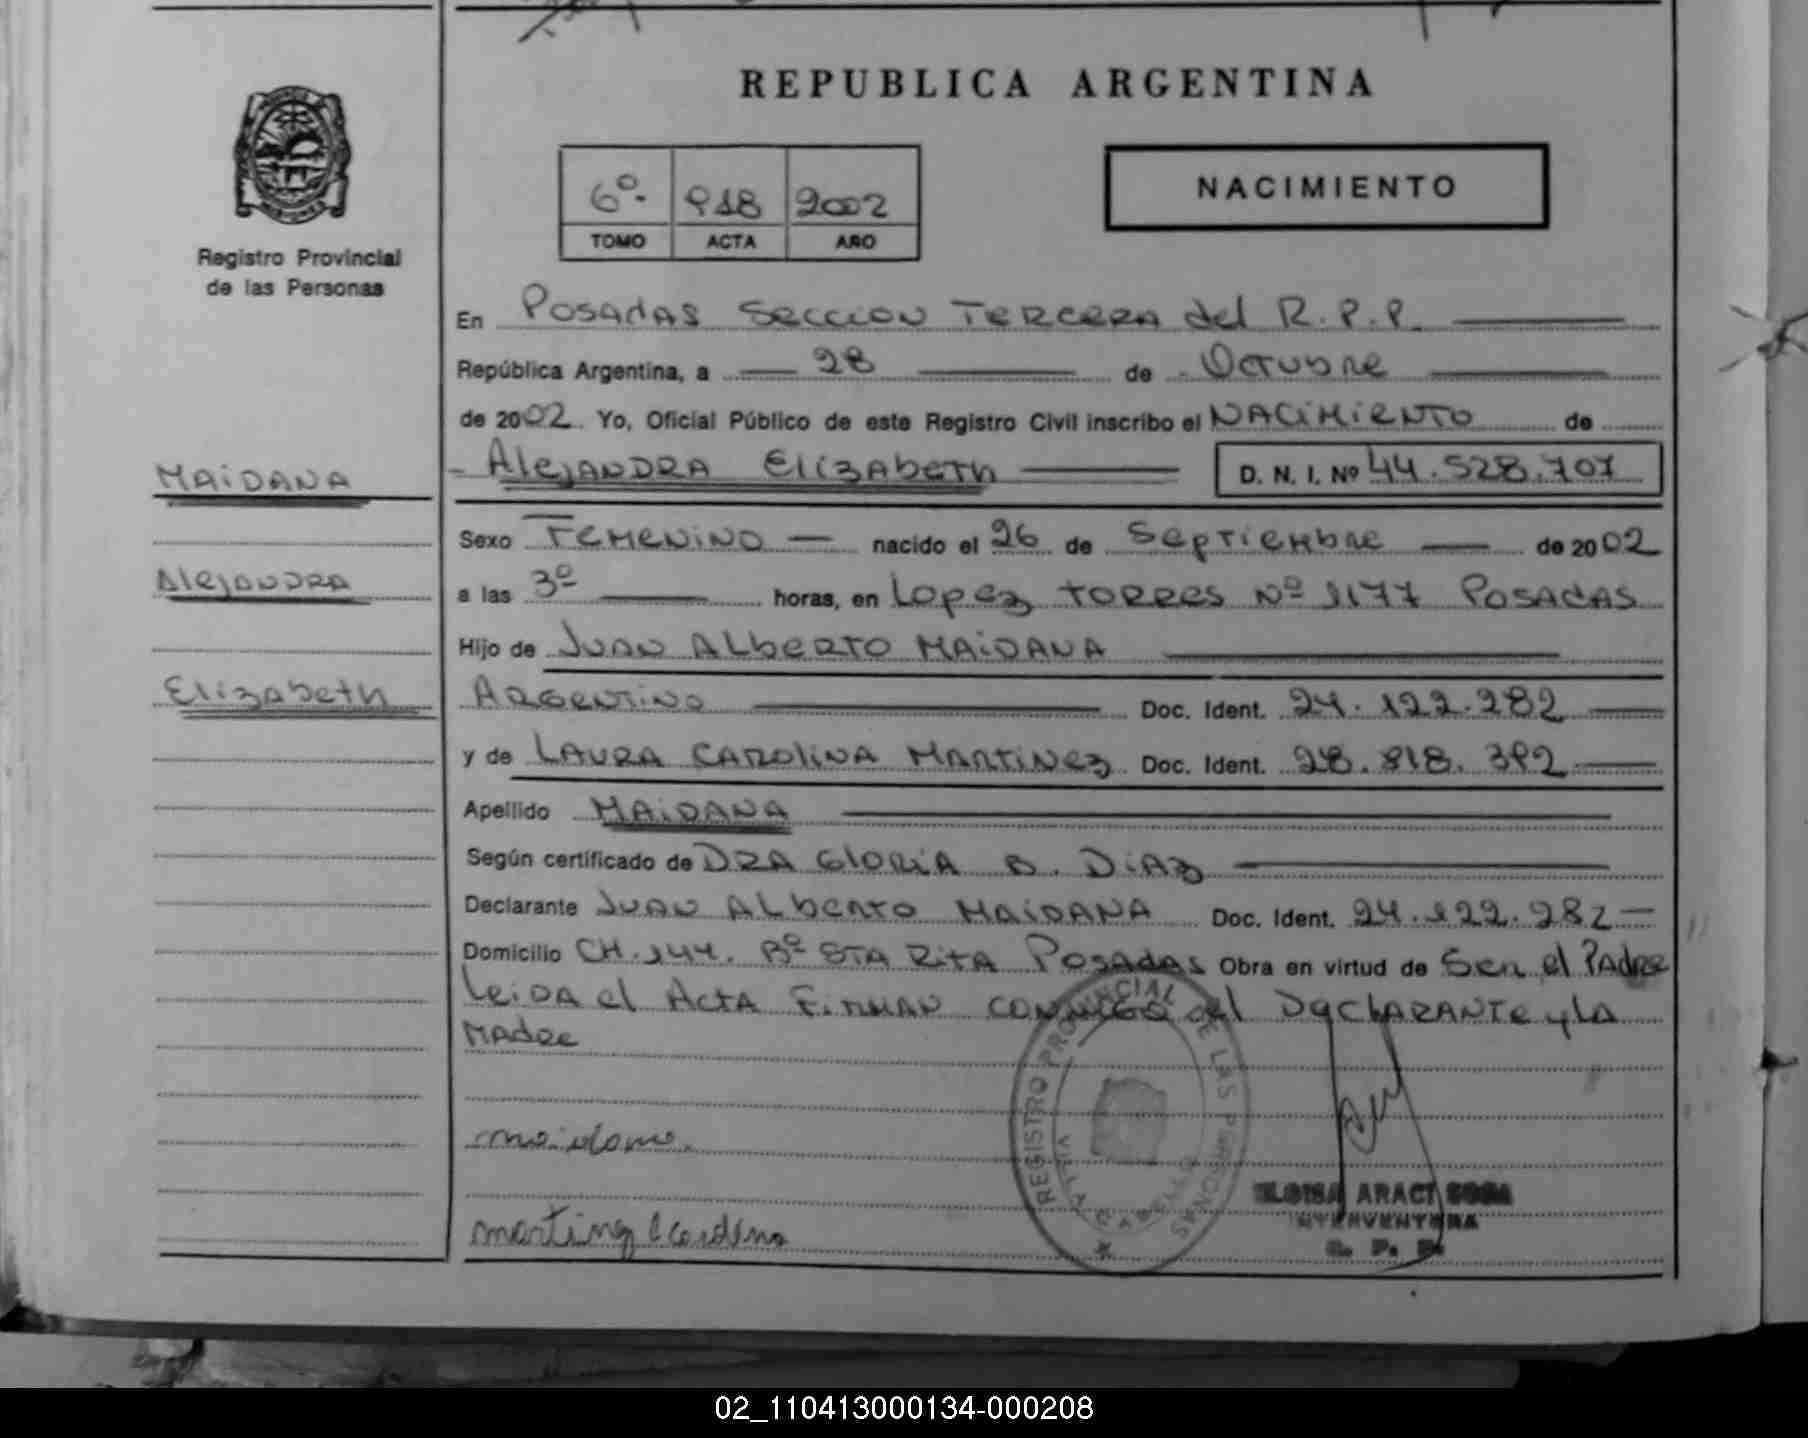 REPUBLICA ARGENTINA
NACIMIENTO
6º. 918 2002
TOMO ACTA AÑO
Registro Provincial
de las Personas
En Posadas Seccion Tercera del R.P.P.
República Argentina, a 28 de Octubre
de 2002. Yo, Oficial Público de este Registro Civil inscribo el NACIMIENTO de
Alejandra Elizabeth D. N. I. Nº 44.528.707
MAIDANA
Alejandra
Elizabeth
Sexo Femenino nacido el 26 de Septiembre de 2002
a las 3º horas, en Lopez Torres Nº 1177 Posadas
Hijo de Juan Alberto Maidana
Argentino Doc. Ident. 24.122.282
y de Laura Carolina Martinez Doc. Ident. 28.818.392
Apellido MAIDANA
Según certificado de DRA Gloria B. Diaz
Declarante Juan Alberto Maidana Doc. Ident. 24.122.282
Domicilio CH.144. Bº STA Rita Posadas Obra en virtud de Ser el Padre
Leida el Acta Firman conmigo el Declarante y la
Madre
REGISTRO PROVINCIAL DE LAS PERSONAS
VILLA CABELLO
maidana.
ELOISA ARACI SOSA
INTERVENTORA
R. P. P.
02_110413000134-000208